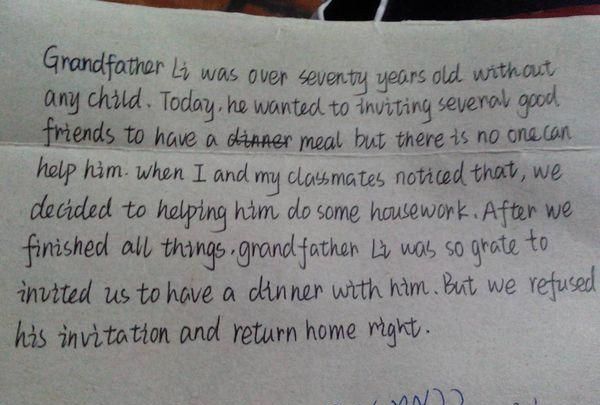 Grandfather Li was over seventy years old without
any child. Today, he wanted to inviting several good
friends to have a dinner meal but there is no one can
help him. when I and my classmates noticed that, we
decided to helping him do some housework. After we
finished all things, grandfather Li was so grate to
invited us to have a dinner with him. But we refused
his invitation and return home right.